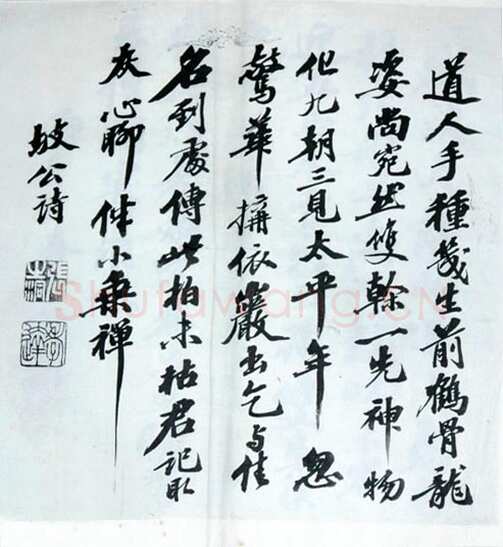 道人手種幾生前鶴骨龍
姿尚宛然雙幹一先神物
化九朝三見太平年忽
驚華構依巖出乞与佳
名到處傳此柏未枯君記取
灰心聊伴小乘禪
坡公詩
張之洞
孝達
Shufawang.CN